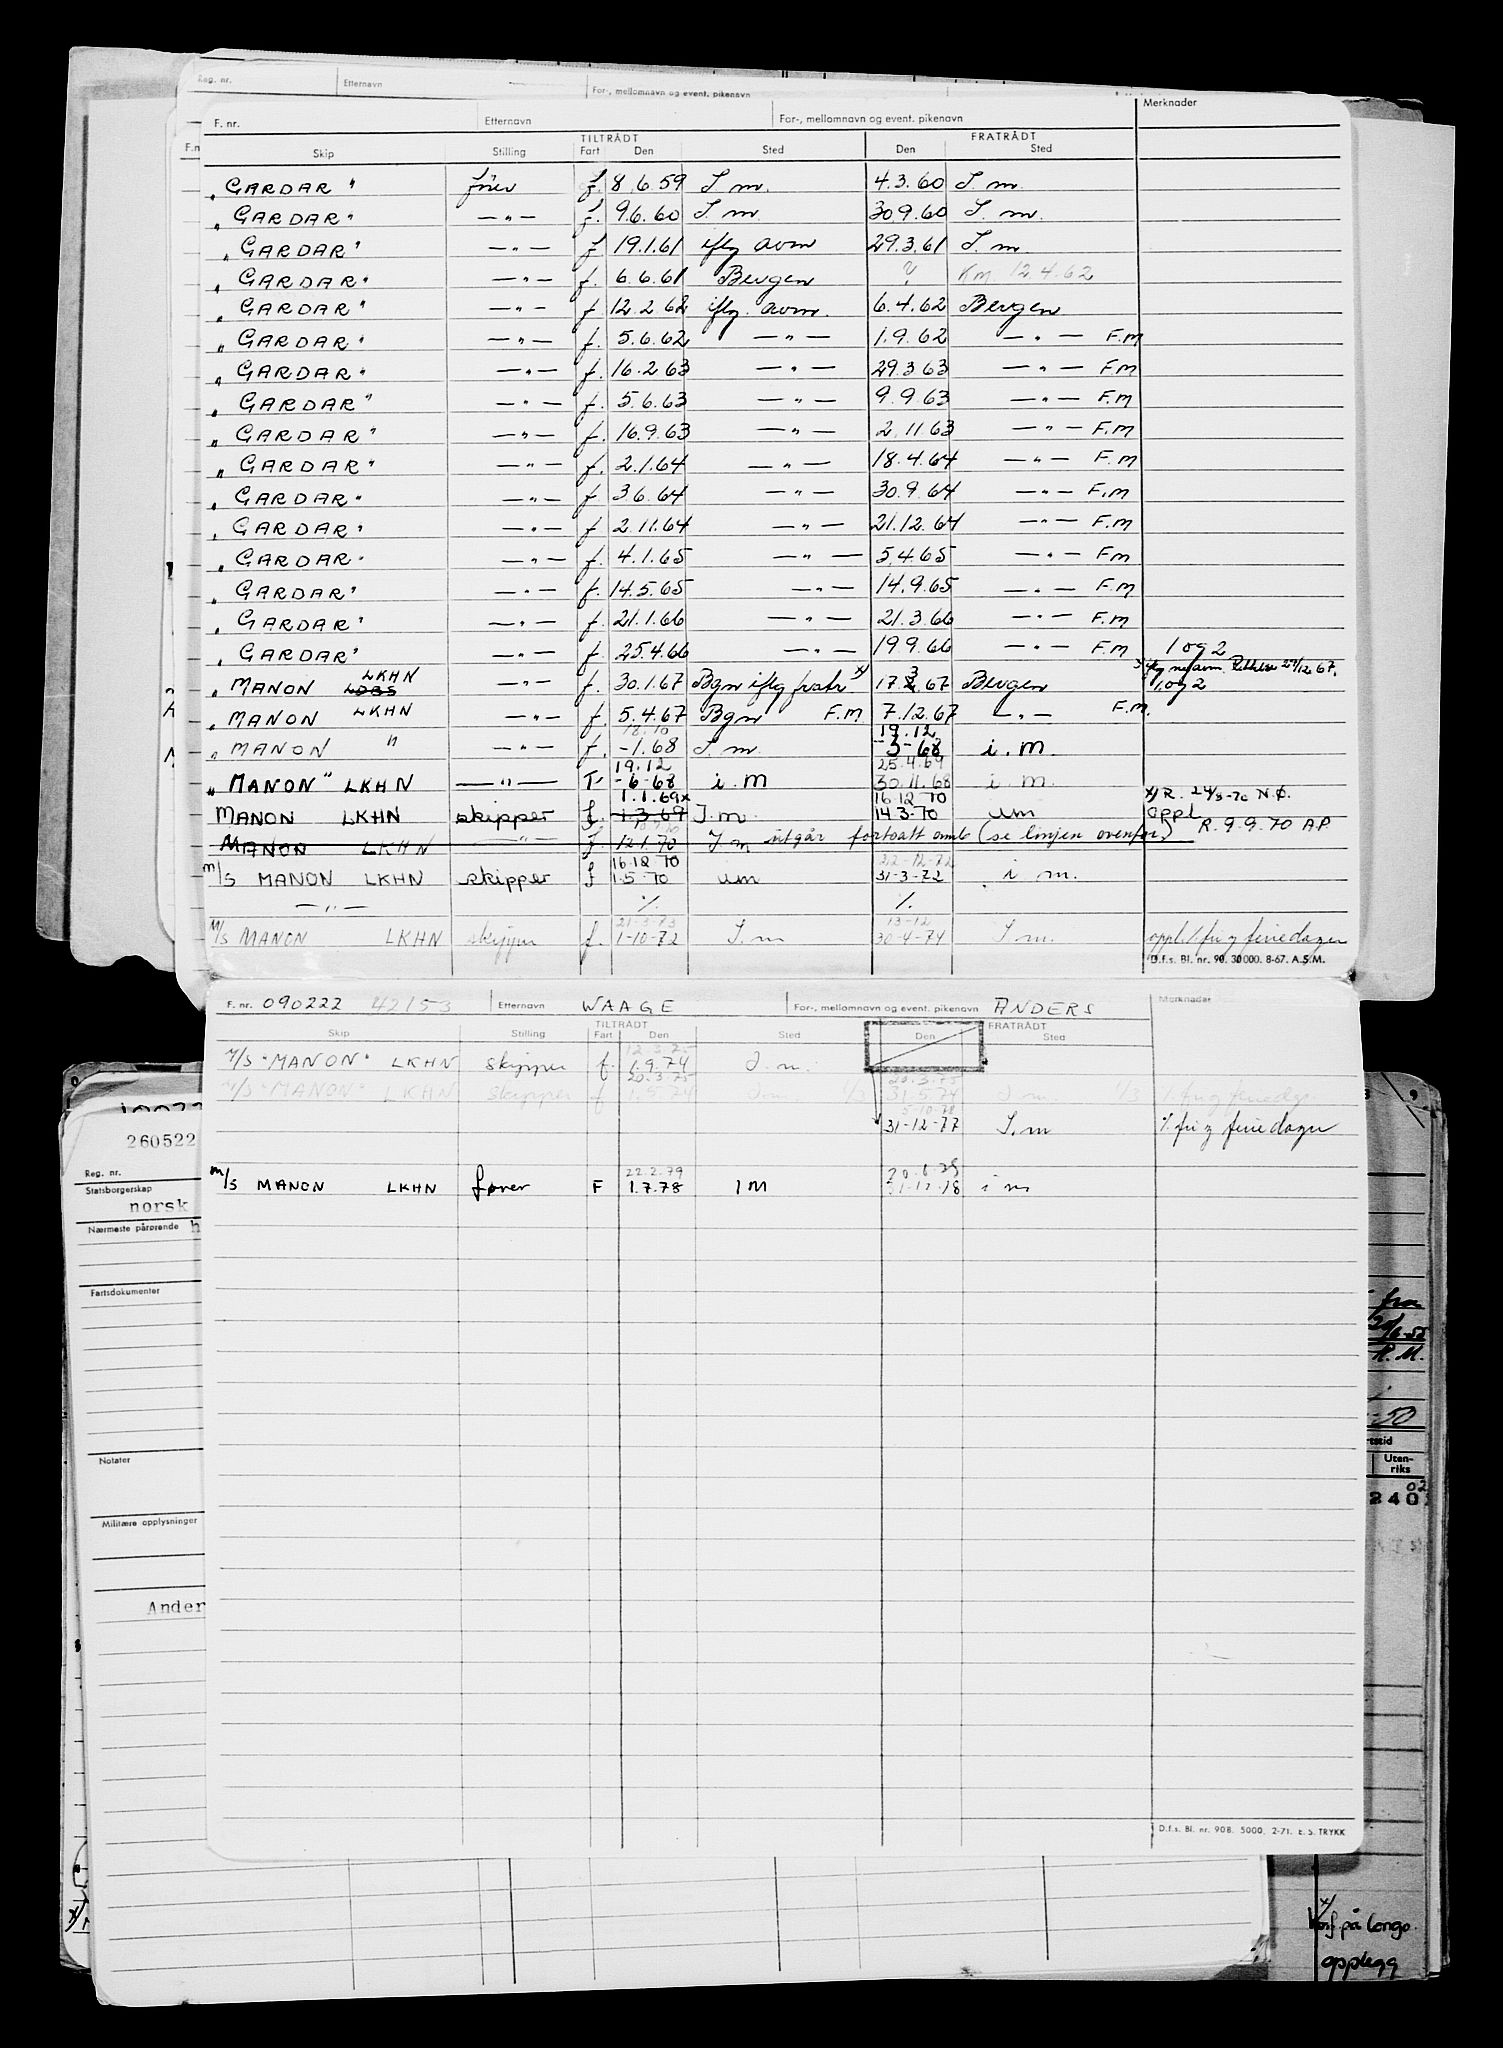 Reg. nr. Etternavn For-, mellomnavn og event. pikenavn
F. nr. Etternavn For-, mellomnavn og event. pikenavn Merknader
TILTRÅDT FRATRÅDT
Skip Stilling Fart Den Sted Den Sted
"GARDAR" fører f. 8.6.59 I m. 4.3.60 I m.
"GARDAR" —"— f. 9.6.60 I m. 30.9.60 I. m.
"GARDAR" —"— f 19.1.61 iflg avm 29.3.61 I. m
"GARDAR" —"— f. 6.6.61 Bergen ? Km. 12.4.62
"GARDAR" —"— f 12.2.62 iflg. avm. 6.4.62 Bergen
"GARDAR" —"— f. 5.6.62 —"— 1.9.62 —"— F.M
"GARDAR" —"— f. 16.2.63 —"— 29.3.63 —"— F.M
"GARDAR" —"— f. 5.6.63 —"— 9.9.63 —"— F.M
"GARDAR" —"— f. 16.9.63 —"— 2.11.63 —"— F.M
"GARDAR" —"— f. 2.1.64 —"— 18.4.64 —"— F.M
"GARDAR" —"— f 3.6.64 —"— 30.9.64 —"— F.M
"GARDAR" —"— f 2.11.64 —"— 21.12.64 —"— F.M
"GARDAR" —"— f. 4.1.65 —"— 5.4.65 —"— F.M
"GARDAR" —"— f. 14.5.65 —"— 14.9.65 —"— F.M
"GARDAR" —"— f. 21.1.66 —"— 21.3.66 —"— F.M
"GARDAR" —"— f. 25.4.66 —"— 19.9.66 —"— F.M 1 og 2
LKHN
"MANON LDBS —"— f. 30.1.67 Bgn iflg fratr x) 17.3.67 Bergen 27/12.67. 1 og 2
"MANON LKHN —"— f. 5.4.67 Bgn F.M 7.12.67 —"— F.M.
18.10 19.12
"MANON " —"— f. -1.68 I. m. -3-68 i. m.
19.12 25.4.69
"MANON" LKHN —"— -6-68 i. M 30.11.68 i. m.
1.1.69x 16.12.70 x) R. 24/3-70 N.Ø.
MANON LKHN skipper f. 1-3-69 I. m. 14.3-70 um oppl. R. 9.9.70 AP
MANON LKHN —"— f. 12.1.70 I m utgår fortsatt omb (se linjen ovenfor)
16.12 70 22-12-72
M/S MANON LKHN skipper f 1.5-70 um 31-3-72 i m.
—"— %. %.
21-3-73 13-12
M/S MANON LKHN skipper f. 1-10-72 I. m 30-4-74 I m. oppl. / fri z feriedager
D.f.s. Bl. nr. 90. 30 000. 8-67. A.S.M.
F. nr. 090222 42153 Etternavn WAAGE For-, mellomnavn og event. pikenavn ANDERS Merknader
TILTRÅDT FRATRÅDT
Skip Stilling Fart Den Sted Den Sted
M/S "MANON" LKHN skipper f. 1.9.74 I. m.
20.3.75 20.3.75
M/S "MANON" LKHN skipper f 1.5.74 I. m. 1/3 31.5.74 I m. 1/3 % fri z feriedgr
5-10-78
31-12-77 I. m % fri z feriedager
22.2.79
M/S MANON LKHN fører F 1.7.78 I M 31-12-78 i m
D.f.s. Bl. nr. 90B. 5000. 2-71. E. S. TRYKK
260522
Reg. nr.
Statsborgerskap
norsk
Nærmeste pårørende h
Fartsdokumenter
Notater
Militære opplysninger
Ander
fra
R. M.
-50
Uten-
riks
240
02
x/
Konf. på Longo.
opplegg